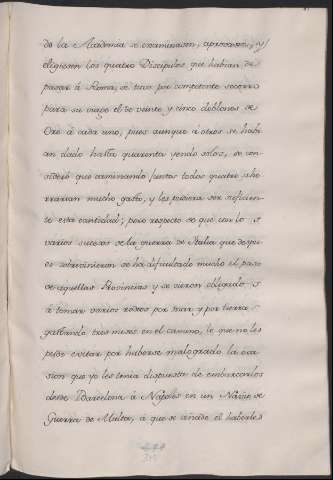 de la Academia se examinasen, aprovasen, y
eligiesen los quatro Discipulos que habian de
pasar á Roma, se tuvo por competente socorro
para su viage el de veinte y cinco doblones de
Oro á cada uno, pues aunque á otros se habi
an dado hasta quarenta yendo solos, se con
sideró que caminando juntos todos quatro aho
rrarian mucho gasto, y les pudiera ser suficien
te esta cantidad; pero respecto de que con lo s
varios sucesos de la guerra de Italia que despu
es sobrevinieron se ha dificultado mucho el paso
de aquellas Provincias y se vieron obligado s
á tomar varios rodeos por mar, y por tierra
gastando tres meses en el camino, lo que no les
pude evitar por haberse malogrado la oca
sion que yo les tenia dispuesta de embarcarlos
desde Barcelona á Napoles en un Navio de
Guerra de Malta, á que se añade el haberles